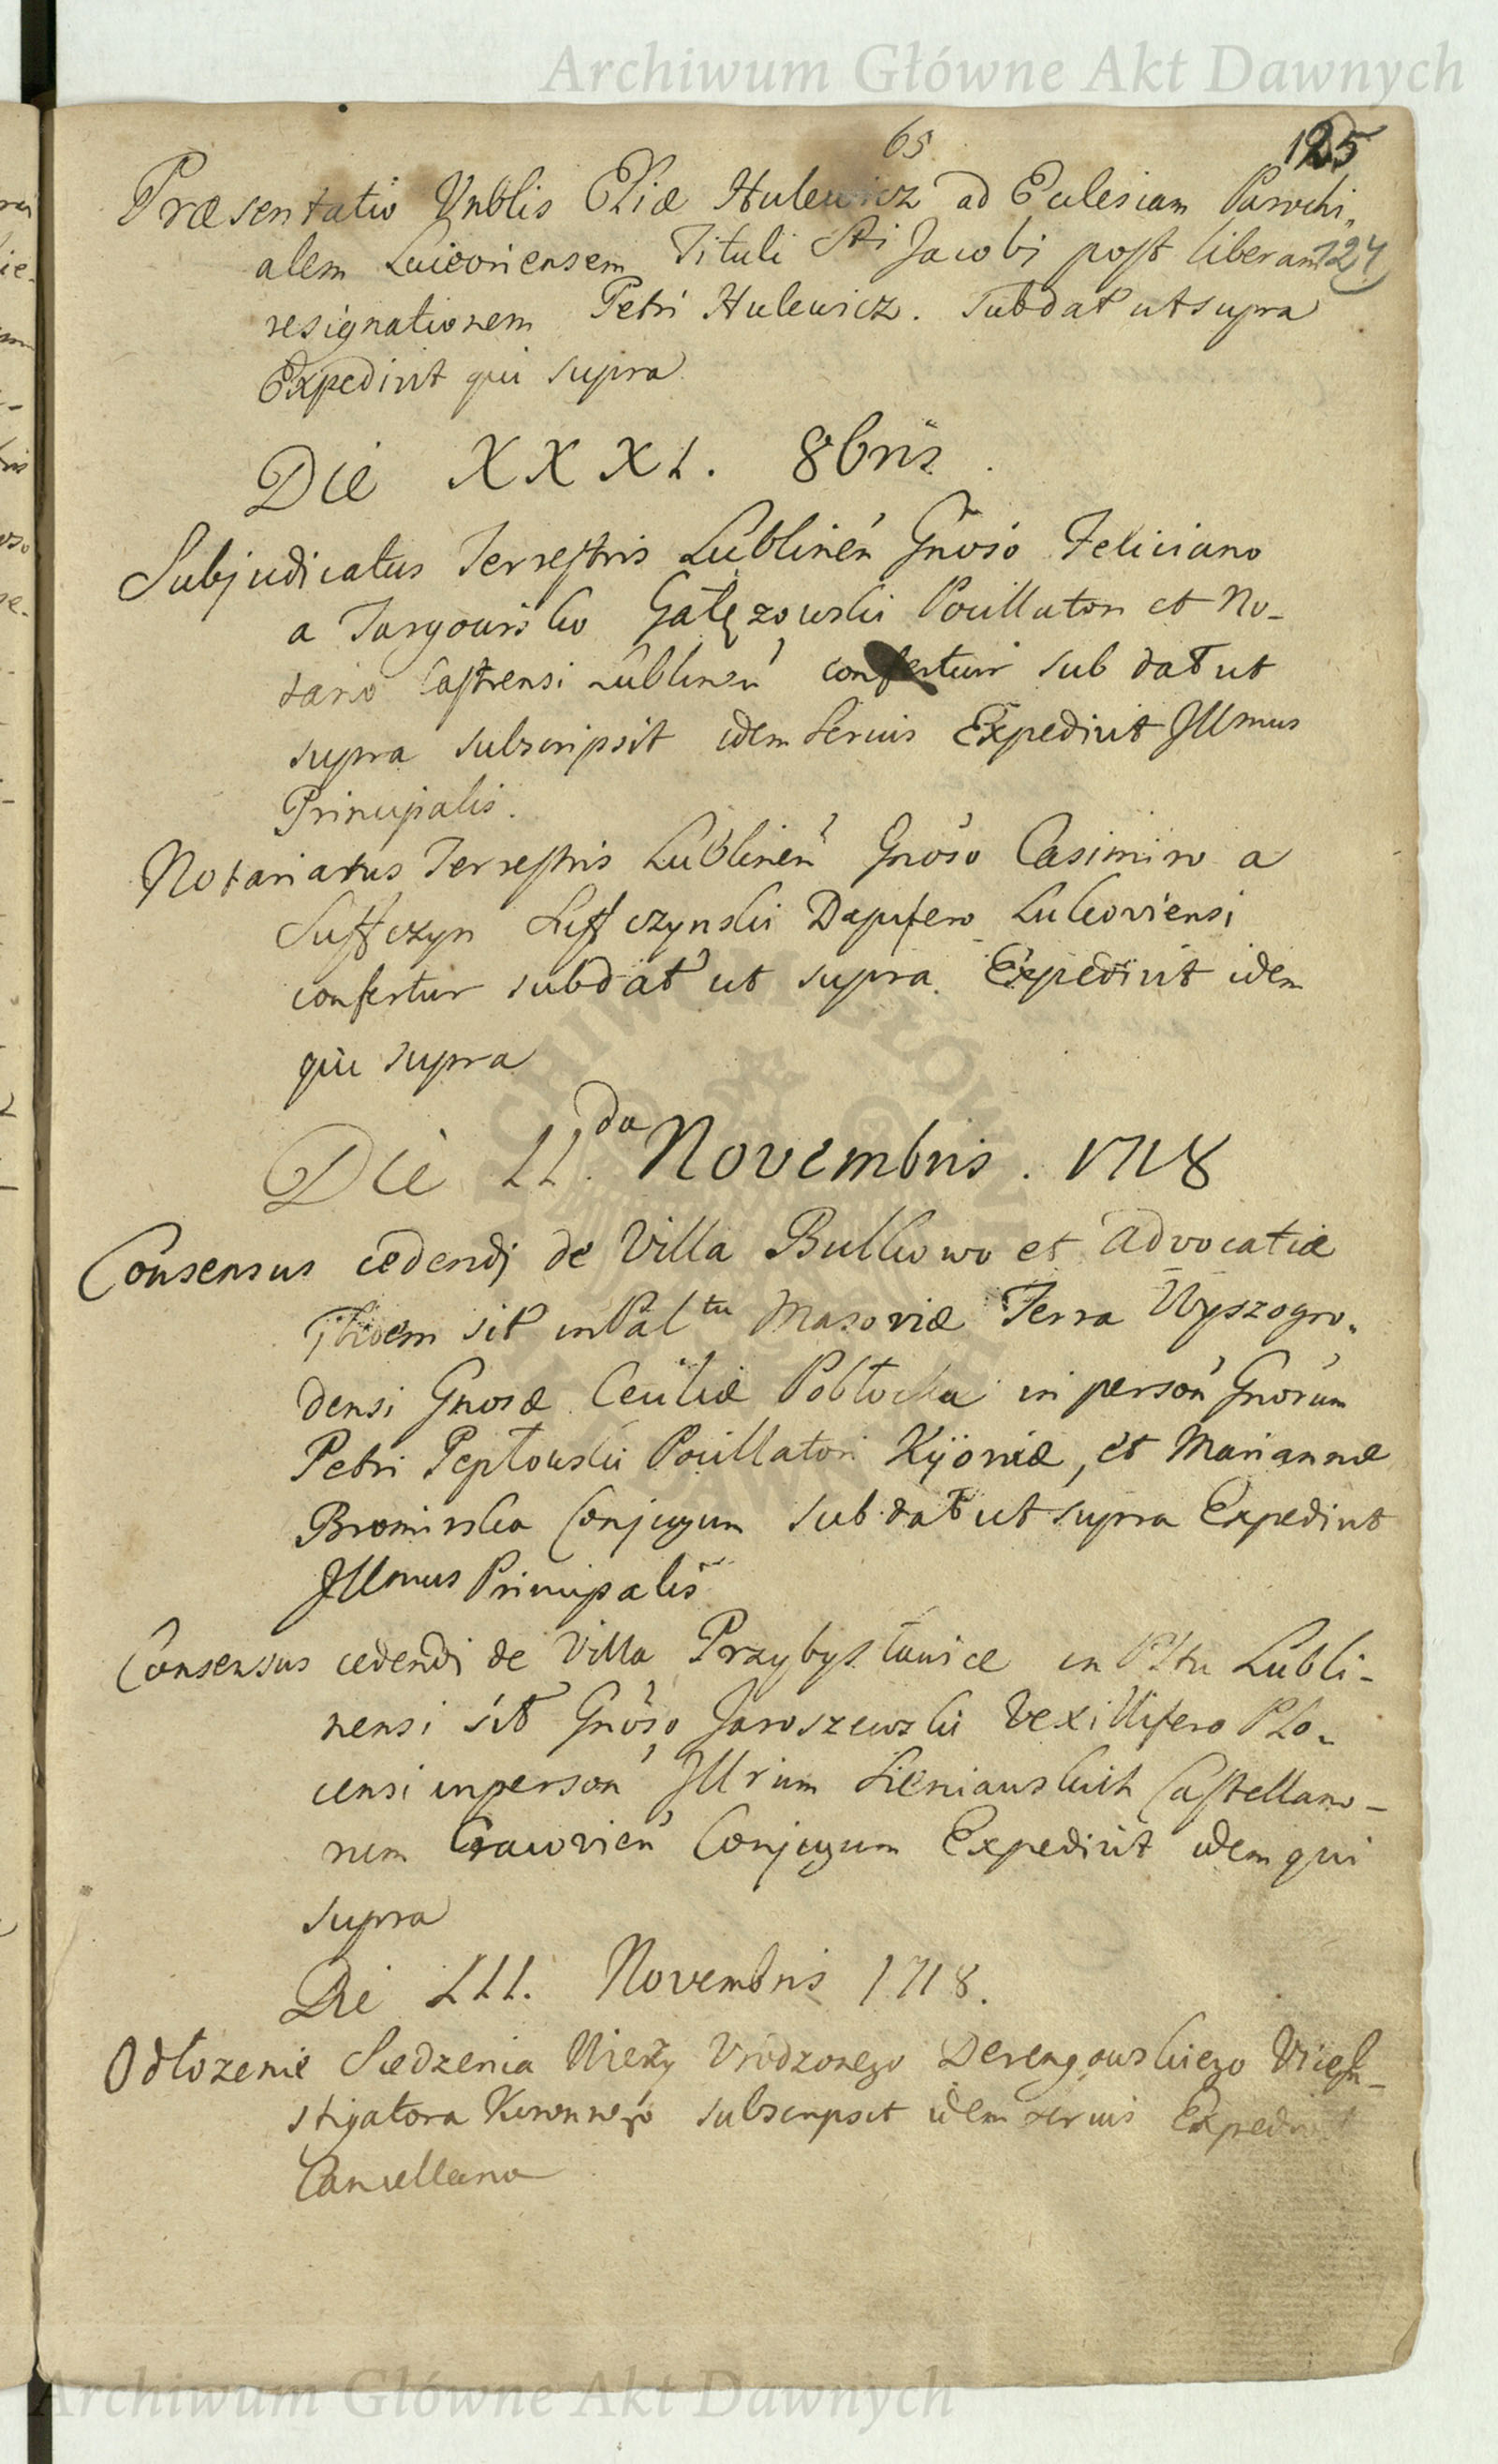 Archiwum Główne Akt Dawnych
65
125
Præsentatio Vnblis Eliæ Hulewicz ad Eclesiam Parochi„
alem Luceoriensem Tituli Sti Jacobi post liberam
124
resignationem Petri Hulewicz. Subdat ut supra
Expedivit qui supra
Die XXXI. 8bris.
Subjudicatus Terrestris Lublinen Gnoso Feliciano
a Targowisko Gałęzowski Pocillatori et No-
tario Castrensi Lublinen confertur sub dat ut
supra subscripsit idem Sermus Expedivit Illmus
Principalis.
Notariatus Terrestris Lublinen Gnoso Casimiro a
Suffczyn Suffczynski Dapifero Lukoviensi
confertur subdat ut supra. Expedivit idem
qui supra
Die II.da Novembris. 1718
Consensus cedendi de Villa Bulkowo et Advocatiæ
Ibidem sit in Paltu Masoviæ Terra Wyszogro„
densi Gnosæ Ceciliæ Pobłocka in person Gnorum
Petri Pepłowski Pocillatori Kijoviæ, et Mariannæ
Bromirska Conjugum sub dat ut supra Expedivit
Illmus Principalis
Consensus cedendi de Villa Przybysławice in Pltu Lubli-
nensi sit Gnoso Jaroszewski Vexillifero Plo-
censi in person Illrium Sieniawskich Castellano-
rum Cracovien Conjugum Expedivit idem qui
supra
Die III. Novembris 1718.
Odłozenie Siedzenia Wieży Vrodzonego Derengowskiego
stigatora Koronnego subscripsit idem sermus Expedivit
Cancellaria
Archiwum Główne Akt Dawnych